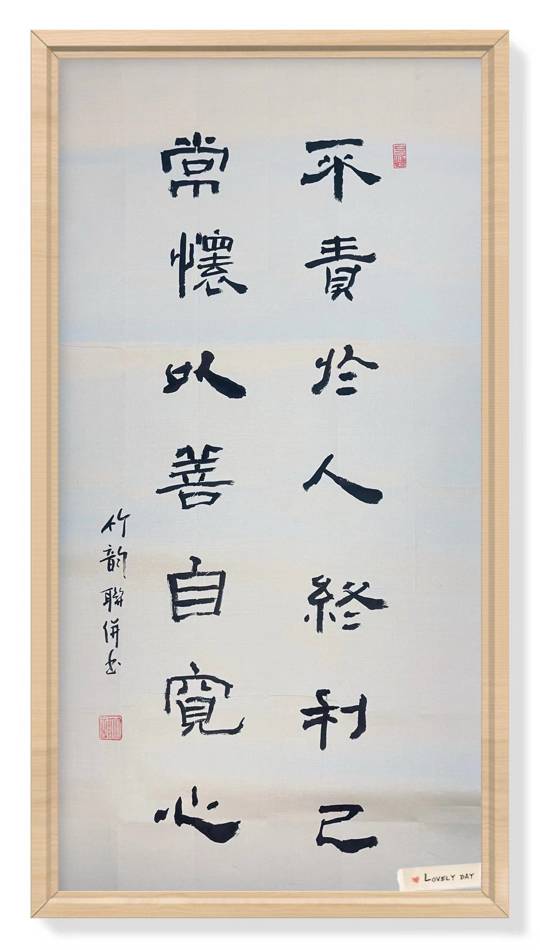 不責於人終利己
常懷以善自寬心
竹韵聯併书
LOVELY DAY